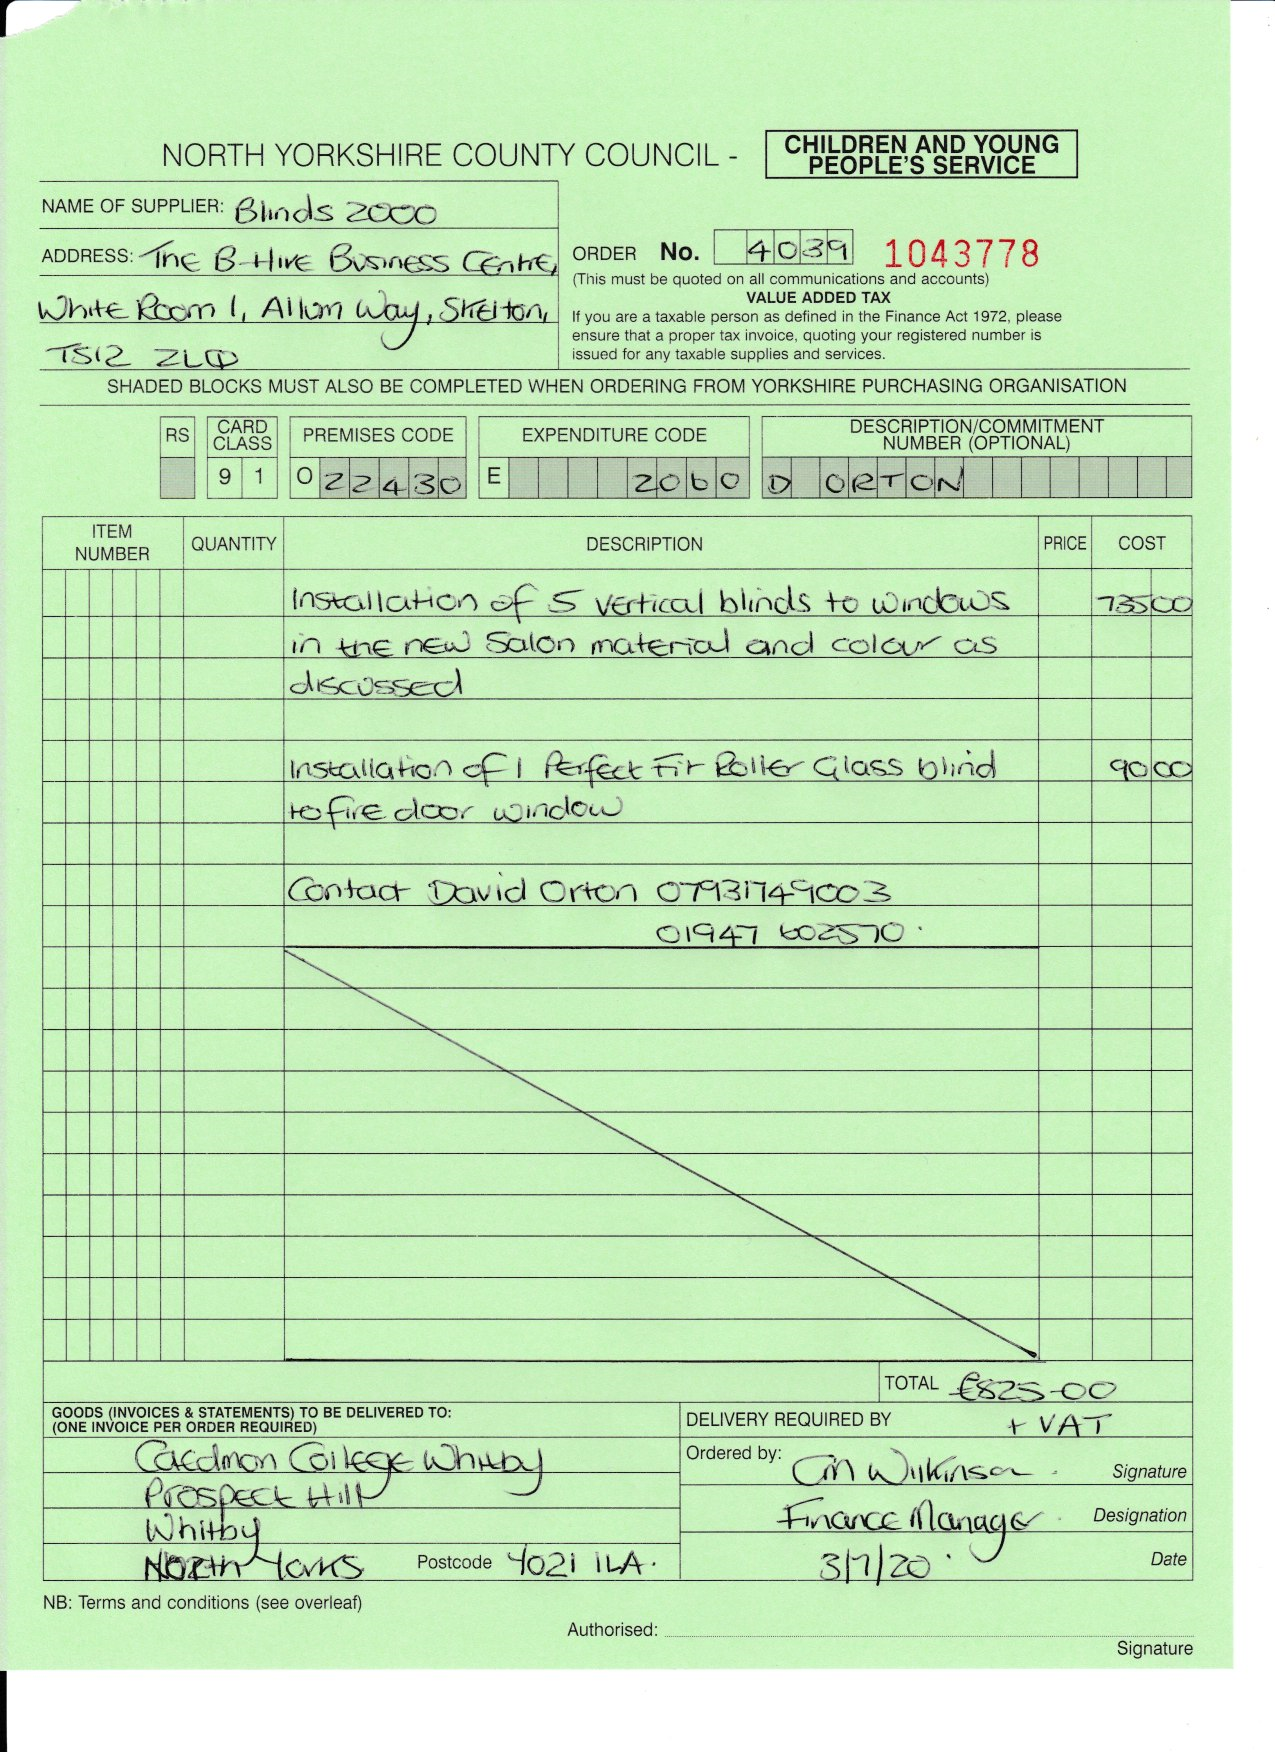 NORTH YORKSHIRE COUNTY COUNCIL -
CHILDREN AND YOUNG
PEOPLE'S SERVICE
NAME OF SUPPLIER: Blinds 2000
ADDRESS: The B-Hive Business Centre,
White Room 1, Allum Way, Skelton,
TS12 2LQ
ORDER No. 4039 1043778
(This must be quoted on all communications and accounts)
VALUE ADDED TAX
If you are a taxable person as defined in the Finance Act 1972, please
ensure that a proper tax invoice, quoting your registered number is
issued for any taxable supplies and services.
SHADED BLOCKS MUST ALSO BE COMPLETED WHEN ORDERING FROM YORKSHIRE PURCHASING ORGANISATION
RS
CARD
CLASS
9 1
PREMISES CODE
O 22430
EXPENDITURE CODE
E 2060
DESCRIPTION/COMMITMENT
NUMBER (OPTIONAL)
D ORTON
ITEM
NUMBER
QUANTITY
DESCRIPTION
PRICE
COST
Installation of 5 vertical blinds to windows 735 00
in the new Salon material and colour as
discussed
Installation of 1 Perfect Fit Roller Glass blind 90 00
to fire door window
Contact David Orton 07931749003
01947 602570.
TOTAL £825-00
+ VAT
GOODS (INVOICES & STATEMENTS) TO BE DELIVERED TO:
(ONE INVOICE PER ORDER REQUIRED)
Caedmon College Whitby
Prospect Hill
Whitby
North Yorks Postcode YO21 1LA.
DELIVERY REQUIRED BY
Ordered by: Wilkinson Signature
Finance Manager Designation
3/7/20 Date
NB: Terms and conditions (see overleaf)
Authorised:
Signature